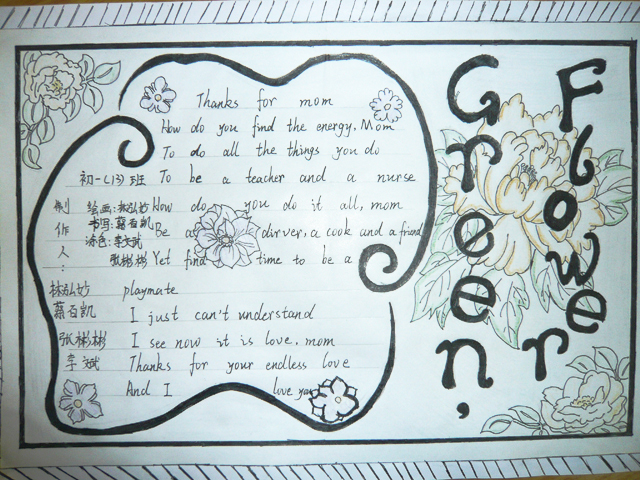 Thanks for mom
How do you find the energy, Mom
To do all the things you do
To be a teacher and a nurse
How do you do it all, mom
Be a dirver, a cook and a friend
Yet find time to be a
playmate
I just can't understand
I see now it is love, mom
Thanks for your endless love
And I love you
初一(13)班
制作人:
绘画:林弘妙
书写:蔡百凯
涂色:李文斌
张彬彬
林弘妙
蔡百凯
张彬彬
李斌
Green,
Flower